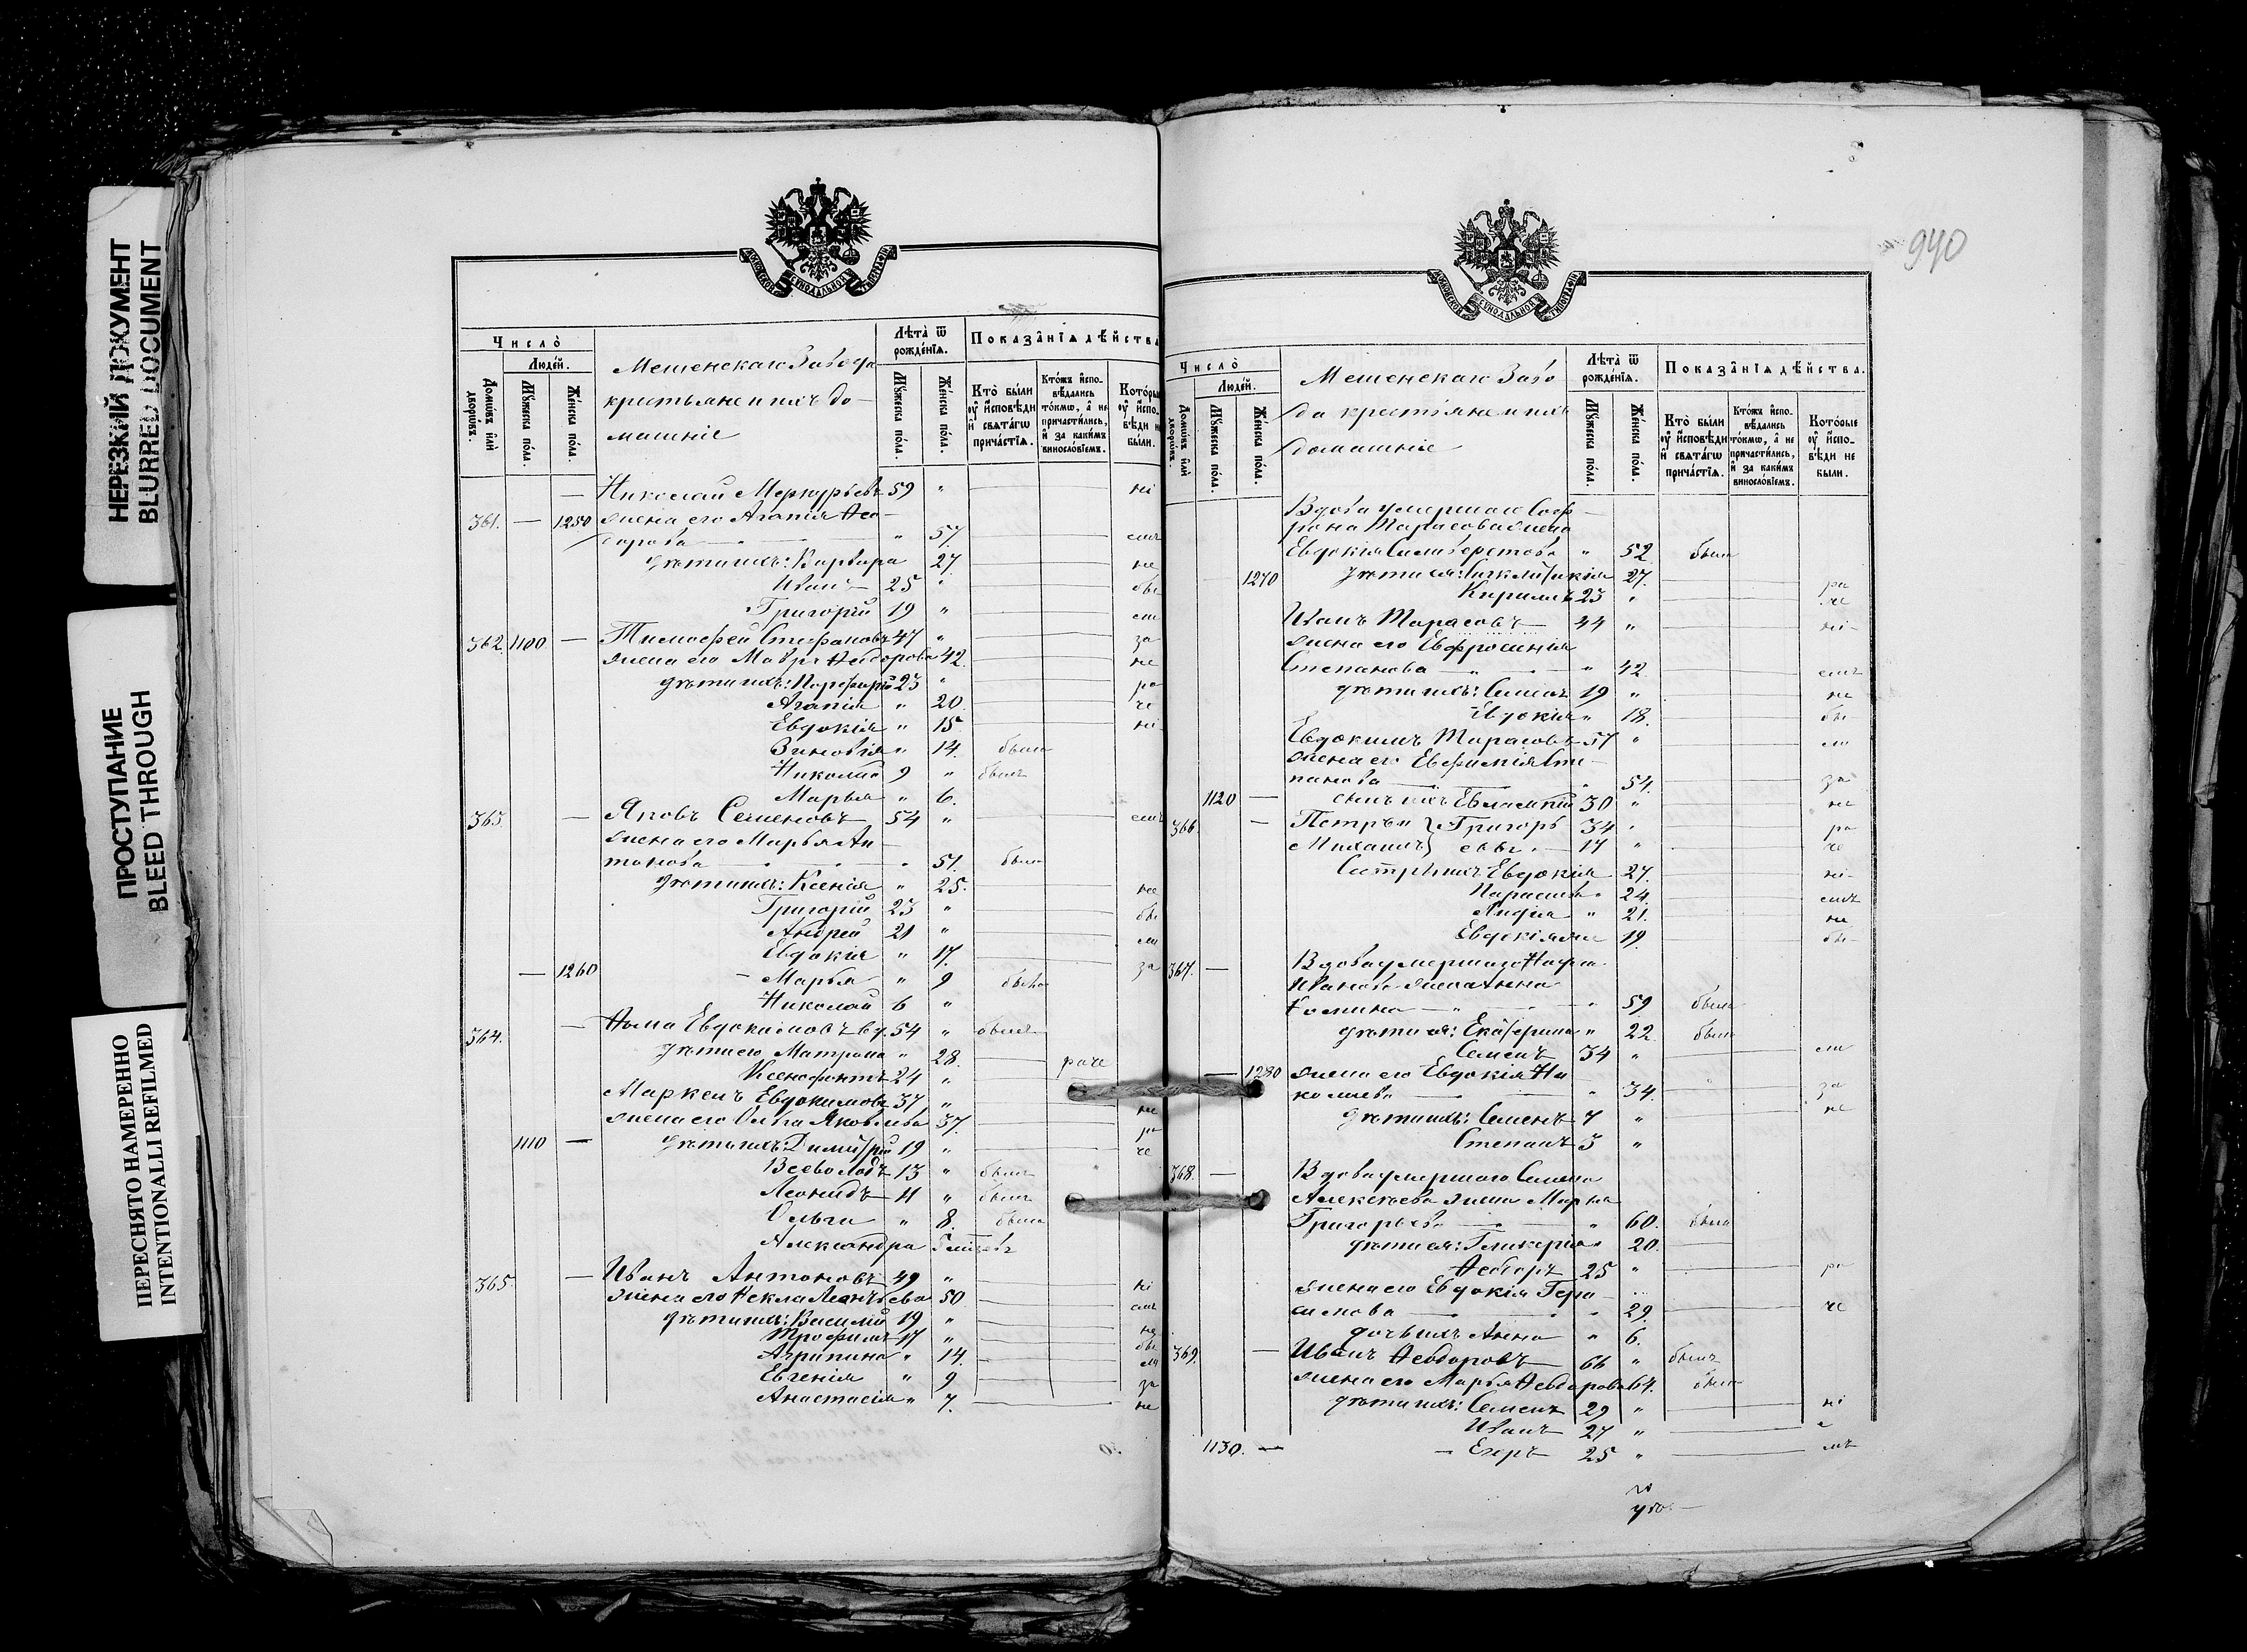 НЕРЕЗКИЙ ДОКУМЕНТ
BLURRED DOCUMENT
ПРОСТУПАНИЕ
BLEED THROUGH
ПЕРЕСНЯТО НАМЕРЕННО
INTENTIONALLI REFILMED
МОСКОВСКОЙ СѴНОДАЛЬНОЙ ТѴПОГРАФІИ
Число̀
Людей.
Домѡвъ и҆лѝ дворѡвъ.
Мꙋжеска пола.
Женска пола.
Мешенскаго Завода
крестьяне и ихъ до-
машніе
Лѣта̀ ѿ рождéнїѧ.
Мꙋжеска пола.
Женска пола.
Показа̂нїѧ дѣ́йства
Кто̀ бы́ли ᲂу҆ и҆сповѣди и҆ свѧта́гѡ причáстїѧ.
Кто́жъ и҆спо-вѣдались то́кмѡ, а҆ не причасти́лись, и҆ за каки́мъ винослóвїемъ.
Кото́рые ᲂу҆ и҆спо-вѣди не бы́ли.
Николай Меркурьевъ 59 "
361. — 1250 жена его Агапія Ѳео-
дорова " 57.
дѣти ихъ: Варвара 27
Иванъ 25 "
Григорій 19 "
362. 1100 — Тимоѳей Стефановъ 47 "
жена его Мавра Ѳеодорова 42.
дѣти ихъ: Порфирій 23 "
Агапія " 20.
Евдокія " 15.
Зиновія " 14. была
Николай 9 " былъ
Марья " 6.
363. — Яковъ Семеновъ 54 "
жена его Марья Ан-
тонова " 51. была
дѣти ихъ: Ксенія " 25.
Григорій 23 "
Андрей 21 "
Евдокія " 17.
— 1260 Марья " 9 была
Николай 6 "
364. — Ѳома Евдокимовъ вд. 54 " былъ
дѣти его Матрона " 28.
Ксенофонтъ 24 "
Маркелъ Евдокимовъ 37 "
жена его Ольга Яковлева 37.
1110 — дѣти ихъ: Димитрій 19 "
Всеволодъ 13 " былъ
Леонидъ 11 " былъ
Ольга " 8. была
Александра
365 — Иванъ Антоновъ 49 "
жена его Ѳекла Леонтьева 50
дѣти ихъ: Василій 19 "
Трофимъ 17 "
Агрипина " 14.
Евгенія " 9
Анастасія " 7.
940
МОСКОВСКОЙ СѴНОДАЛЬНОЙ ТѴПОГРАФІИ
Число̀
Людей.
Домѡвъ и҆лѝ дворѡвъ.
Мꙋжеска пола.
Женска пола.
Мешенскаго Заво
да крестьяне и ихъ
домашніе
Лѣта̀ ѿ рождéнїѧ.
Мꙋжеска пола.
Женска пола.
Показа̂нїѧ дѣ́йства.
Кто̀ бы́ли ᲂу҆ и҆сповѣди и҆ свѧта́гѡ причáстїѧ.
Кто́жъ и҆спо-вѣдались то́кмѡ, а҆ не причасти́лись, и҆ за каки́мъ винослóвїемъ.
Кото́рые ᲂу҆ и҆спо-вѣди не бы́ли.
Вдова умершаго Соф-
рона Тарасова жена
Евдокія Селиверстова " 52 была
1270 дѣти ея: 27.
Кирилъ 23 "
Иванъ Тарасовъ 44 "
жена его Евфросинія
Степанова " 42.
дѣти ихъ: Семенъ 19 "
Евдокія " 18.
Евдокимъ Тарасовъ 57 "
жена его Евфимія Сте-
панова " 54.
1120 — сынъ ихъ Евлампій 30 "
366. — Петръ и Григорь 34 "
Михаилъ евы 17 "
Сестры ихъ Евдокія 27.
Параскева " 24.
" 21.
Евдокія 19.
367. — Вдова умершаго
Иванова жена Анна
59 была
дѣти ея: Екатерина " 22. была
Семенъ 34 "
— 1280 жена его Евдокія Ни
колаева " 34.
дѣти ихъ: Семенъ 7 "
Степанъ 3 "
368. — Вдова умершаго Семена
Алексѣева жена Марѳа
Григорьева " 60. была
дѣти ея: Гликерія " 20.
Ѳеодоръ 25 "
жена его Евдокія Гера-
симова " 29.
дочь ихъ Анна " 6.
369. — Иванъ Ѳеодоровъ 66 " былъ
жена его Марья Ѳеодорова 64. была
дѣти ихъ: Семенъ 29 "
Иванъ 27 "
1130. — Егоръ 25 "